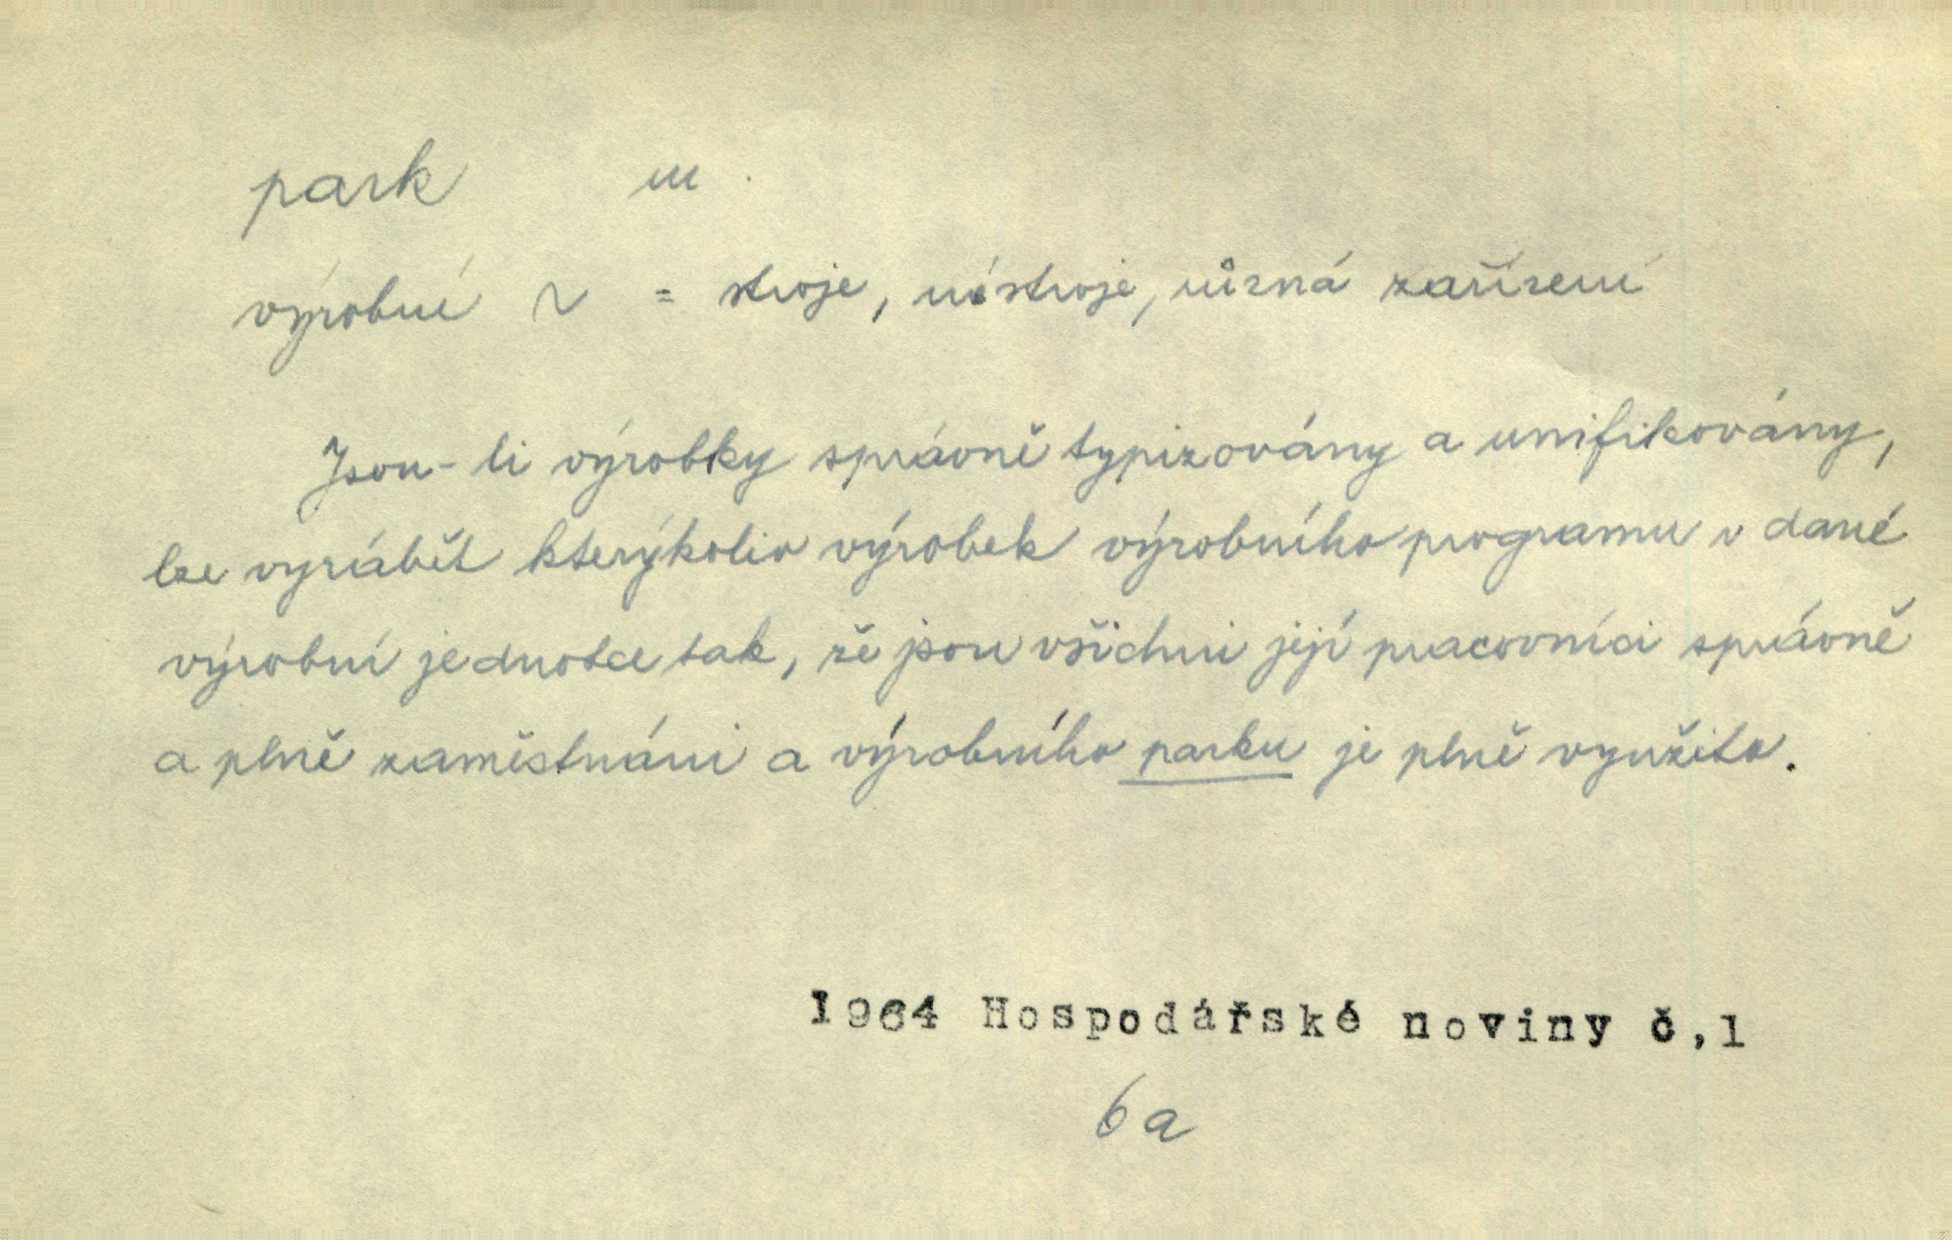 park m.
výrobní ~ = stroje, nástroje, různá zařízení
Jsou-li výrobky správně typizovány a unifikovány,
lze vyrábět kterýkoliv výrobek výrobního programu v dané
výrobní jednotce tak, že jsou všichni její pracovníci správně
a plně zaměstnáni a výrobního parku je plně využito.
1964 Hospodářské noviny č,1
6a